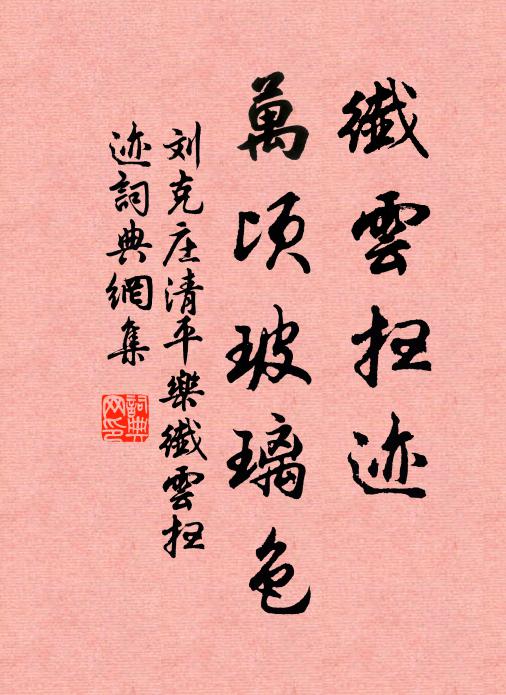 纖雲扫迹
萬顷玻璃色
刘克庄清平樂纖雲扫
迹詞典網集
詞典网印